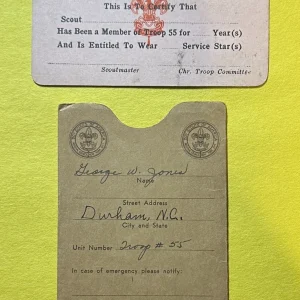 This Is To Certify That
Scout
Has Been a Member of Troop 55 for Year(s)
And is Entitled To Wear Service Star(s)
Scoutmaster Chr. Troop Committee
George W. Jones
Name
Street Address
Durham, N.C.
City and State
Unit Number Troop # 55
In case of emergency please notify: